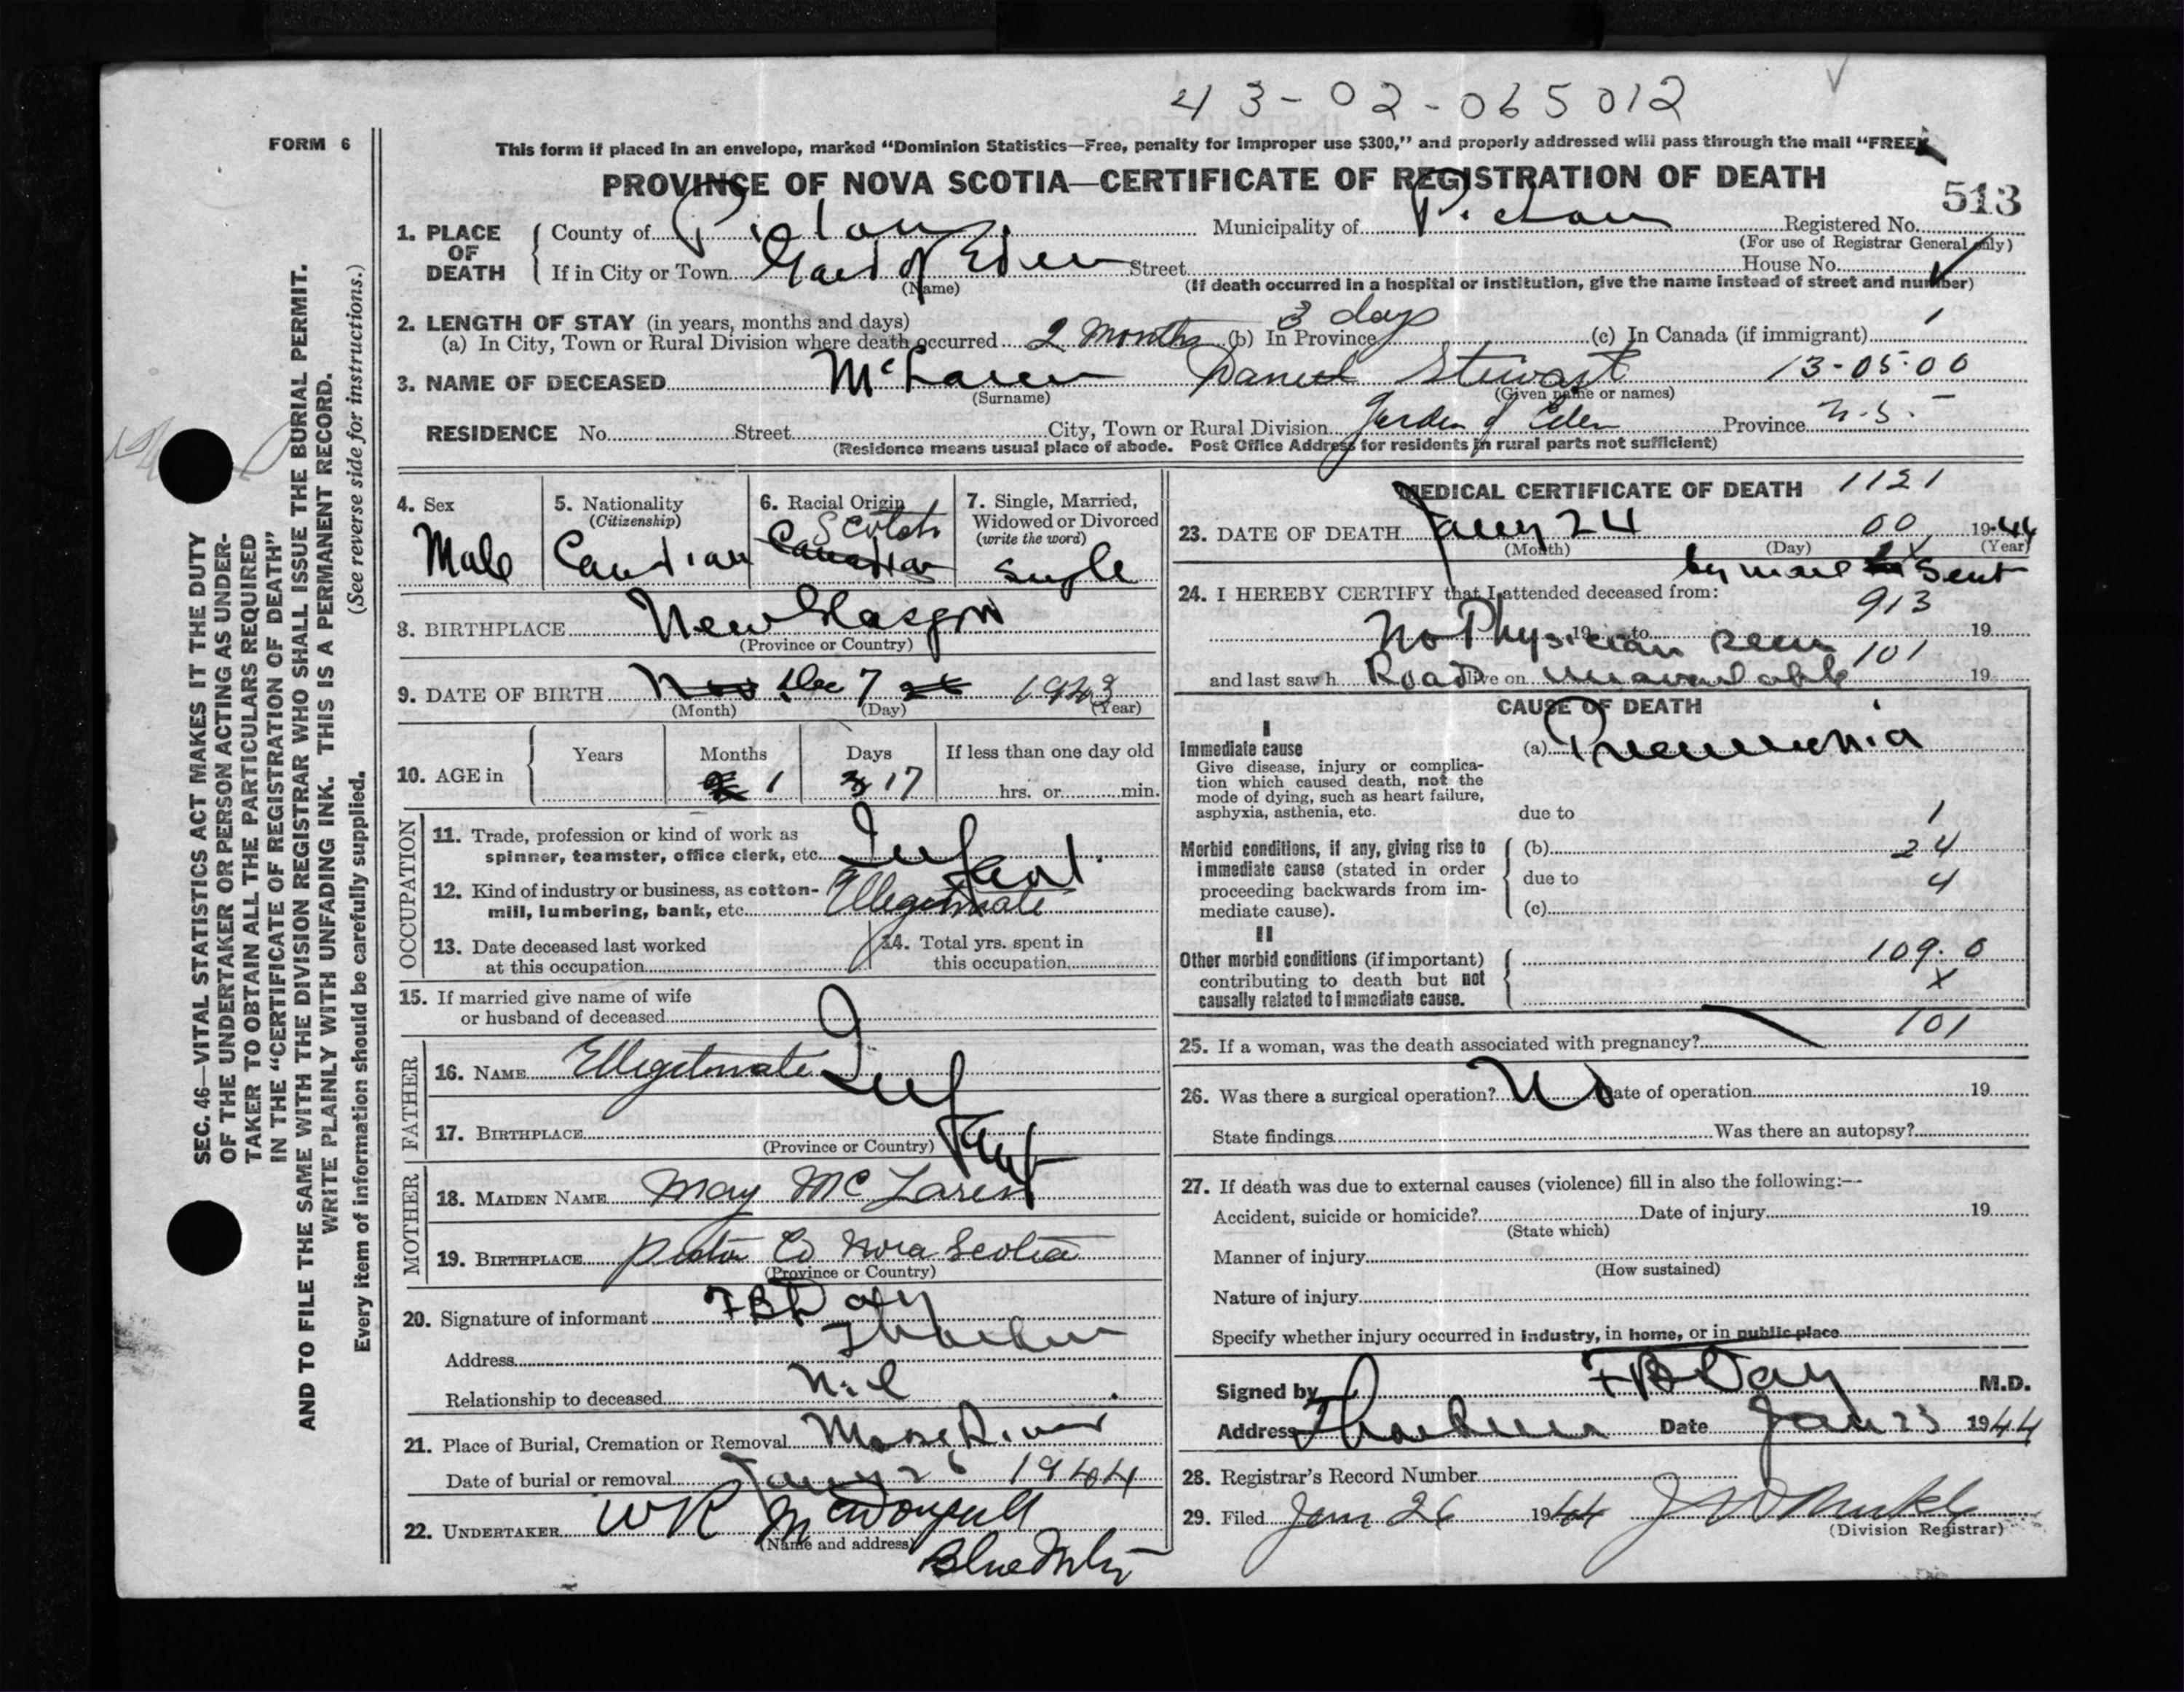 43-02-065012
FORM 6
This form if placed in an envelope, marked “Dominion Statistics—Free, penalty for improper use $300,” and properly addressed will pass through the mail “FREE”
PROVINCE OF NOVA SCOTIA—CERTIFICATE OF REGISTRATION OF DEATH
513
1. PLACE OF DEATH County of Pictou Municipality of Pictou Registered No.
(For use of Registrar General only)
If in City or Town Gard of Eden Street House No.
(Name) (If death occurred in a hospital or institution, give the name instead of street and number)
2. LENGTH OF STAY (in years, months and days)
(a) In City, Town or Rural Division where death occurred 2 Months 3 days (b) In Province (c) In Canada (if immigrant) 1
3. NAME OF DECEASED McLaren Daniel Stewart 13-05-00
(Surname) (Given name or names)
RESIDENCE No. Street City, Town or Rural Division Garden of Eden Province N.S.
(Residence means usual place of abode. Post Office Address for residents in rural parts not sufficient)
4. Sex Male
5. Nationality (Citizenship) Canadian
6. Racial Origin Scotch Canadian
7. Single, Married, Widowed or Divorced (write the word) Single
8. BIRTHPLACE New Glasgow
(Province or Country)
9. DATE OF BIRTH Nov Dec 7 1943
(Month) (Day) (Year)
10. AGE in Years Months 1 Days 17 If less than one day old hrs. or min.
OCCUPATION
11. Trade, profession or kind of work as spinner, teamster, office clerk, etc. Infant
12. Kind of industry or business, as cotton-mill, lumbering, bank, etc. Illegitimate
13. Date deceased last worked at this occupation
14. Total yrs. spent in this occupation
15. If married give name of wife or husband of deceased
FATHER
16. NAME Ellegitimate Infant
17. BIRTHPLACE
(Province or Country)
MOTHER
18. MAIDEN NAME May McLaren
19. BIRTHPLACE Pictou Co Nova Scotia
(Province or Country)
20. Signature of informant F B Day
Address Thorburn
Relationship to deceased Nil
21. Place of Burial, Cremation or Removal Moose River
Date of burial or removal Jany 26 1944
22. UNDERTAKER W R McDougall
(Name and address)
Blue Mtn
MEDICAL CERTIFICATE OF DEATH 1121
23. DATE OF DEATH Jany 24 00 1944
(Month) (Day) (Year)
by mail Sent
24. I HEREBY CERTIFY that I attended deceased from: 913
No Physician seen 19 to 19
101
and last saw h alive on 19
Road unavailable
CAUSE OF DEATH
I
Immediate cause (a) Pneumonia
Give disease, injury or complication which caused death, not the mode of dying, such as heart failure, asphyxia, asthenia, etc.
due to 1
Morbid conditions, if any, giving rise to immediate cause (stated in order proceeding backwards from immediate cause).
(b) 24
due to 4
(c)
II
Other morbid conditions (if important) contributing to death but not causally related to immediate cause.
109.0
X
101
25. If a woman, was the death associated with pregnancy?
26. Was there a surgical operation? No Date of operation 19
State findings Was there an autopsy?
27. If death was due to external causes (violence) fill in also the following:—
Accident, suicide or homicide? Date of injury 19
(State which)
Manner of injury
(How sustained)
Nature of injury
Specify whether injury occurred in industry, in home, or in public place
Signed by F B Day M.D.
Address Thorburn Date Jan 23 1944
28. Registrar’s Record Number
29. Filed Jan 26 1944
(Division Registrar)
SEC. 46—VITAL STATISTICS ACT MAKES IT THE DUTY
OF THE UNDERTAKER OR PERSON ACTING AS UNDER-
TAKER TO OBTAIN ALL THE PARTICULARS REQUIRED
IN THE “CERTIFICATE OF REGISTRATION OF DEATH”
AND TO FILE THE SAME WITH THE DIVISION REGISTRAR WHO SHALL ISSUE THE BURIAL PERMIT.
WRITE PLAINLY WITH UNFADING INK. THIS IS A PERMANENT RECORD.
Every item of information should be carefully supplied. (See reverse side for instructions.)